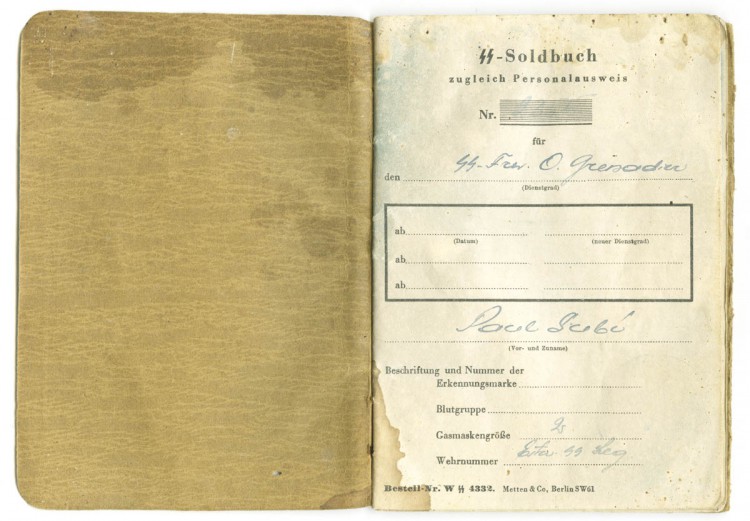 ᛋᛋ-Soldbuch
zugleich Personalausweis
Nr.
für
den ᛋᛋ-Frw. O. Grenadier
(Dienstgrad)
ab
(Datum) (neuer Dienstgrad)
ab
ab
Paul
(Vor- und Zuname)
Beschriftung und Nummer der
Erkennungsmarke
Blutgruppe
Gasmaskengröße 2
Wehrnummer ᛋᛋ Leg
Bestell-Nr. W ᛋᛋ 4332. Metten & Co., Berlin SW61